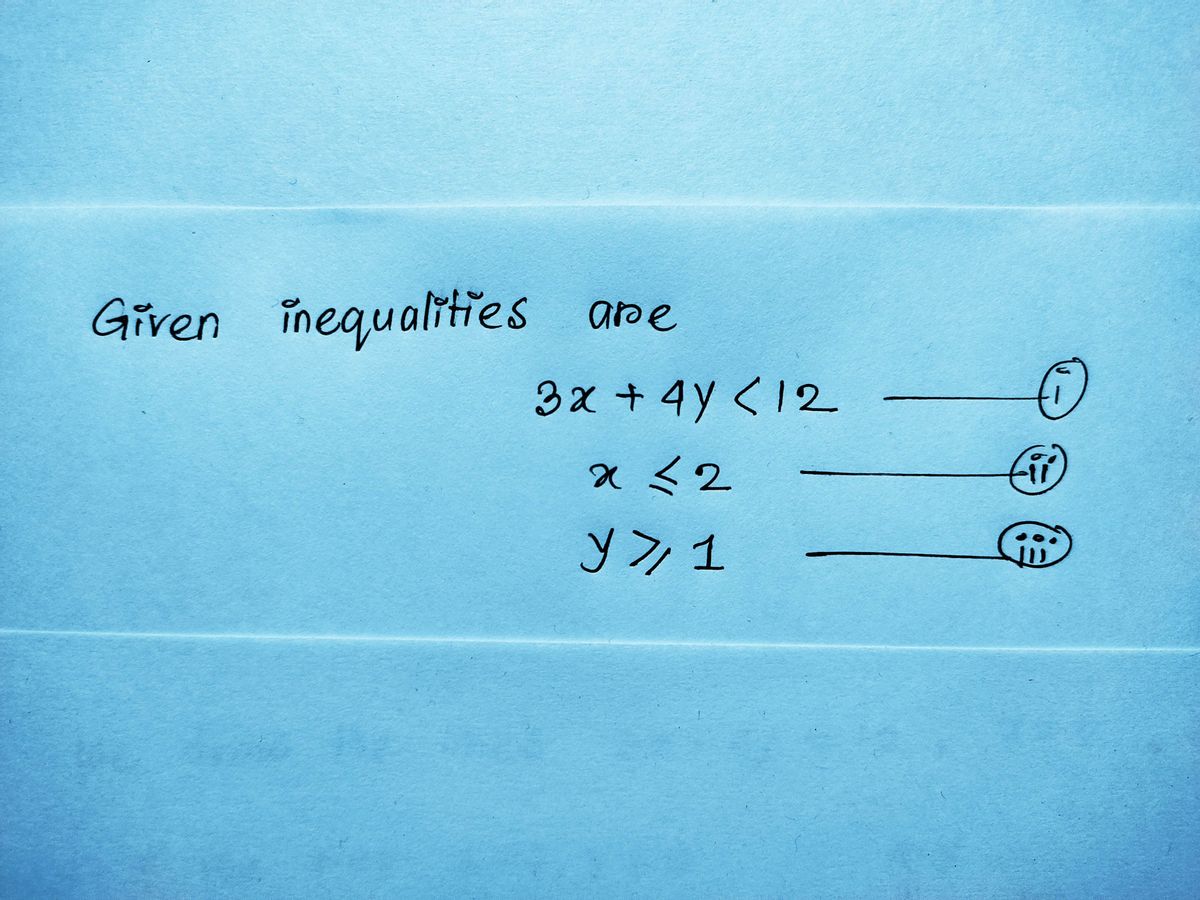 Given inequalities are
3x + 4y < 12 ——— (i)
x ≤ 2 ——— (ii)
y ⩾ 1 ——— (iii)